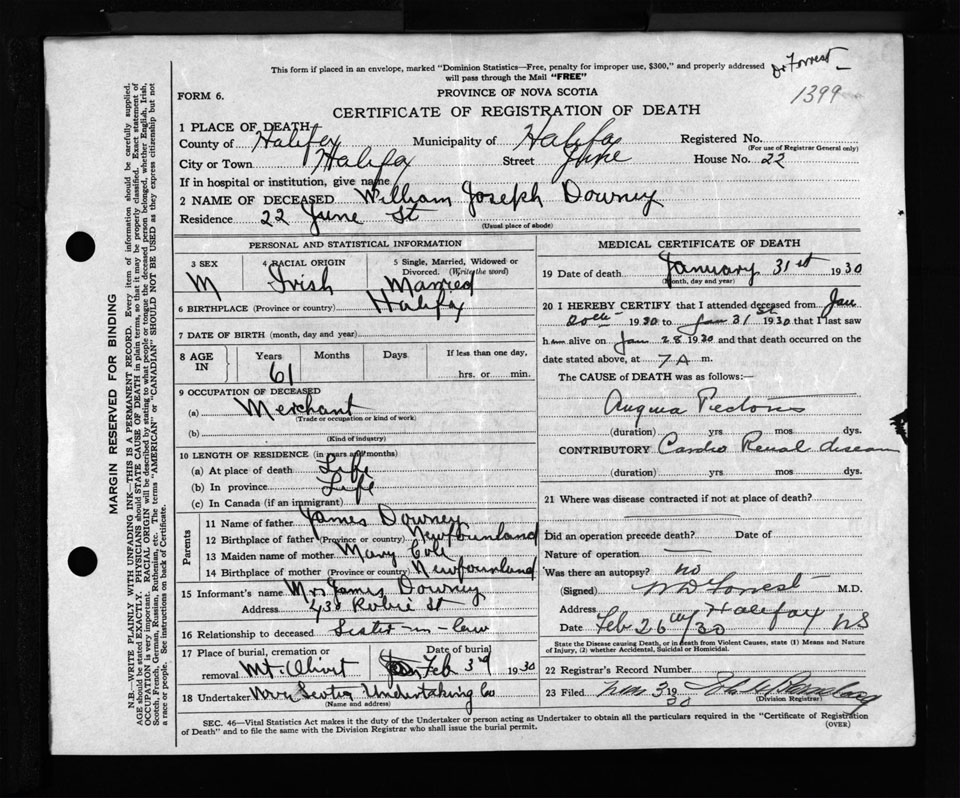 This form if placed in an envelope, marked "Dominion Statistics—Free, penalty for improper use, $300," and properly addressed
will pass through the Mail "FREE"
Dr Forrest
1399
FORM 6.
PROVINCE OF NOVA SCOTIA
CERTIFICATE OF REGISTRATION OF DEATH
1 PLACE OF DEATH
County of Halifax Municipality of Halifax Registered No.
(For use of Registrar General only)
City or Town Halifax Street June House No. 22
If in hospital or institution, give name
2 NAME OF DECEASED William Joseph Downey
Residence 22 June St
(Usual place of abode)
PERSONAL AND STATISTICAL INFORMATION
3 SEX 4 RACIAL ORIGIN 5 Single, Married, Widowed or Divorced. (Write the word)
M Irish Married
6 BIRTHPLACE (Province or country) Halifax
7 DATE OF BIRTH (month, day and year)
8 AGE IN Years Months Days If less than one day,
61 hrs. or min.
9 OCCUPATION OF DECEASED
(a) Merchant
(Trade or occupation or kind of work)
(b)
(Kind of industry)
10 LENGTH OF RESIDENCE (in years and months)
(a) At place of death Life
(b) In province Life
(c) In Canada (if an immigrant)
Parents
11 Name of father James Downey
12 Birthplace of father (Province or country) Newfounland
13 Maiden name of mother Mary Cole
14 Birthplace of mother (Province or country) Newfounland
15 Informant's name Mrs James Downey
Address 43 Robie St
16 Relationship to deceased Sister-in-law
17 Place of burial, cremation or removal Date of burial
Mt Olivet Feb 3rd 1930
18 Undertaker Nova Scotia Undertaking Co
(Name and address)
MEDICAL CERTIFICATE OF DEATH
19 Date of death January 31st 1930
(Month, day and year)
20 I HEREBY CERTIFY that I attended deceased from Jan
1930 to Jan 31st 1930 that I last saw
him alive on Jan 28 1930 and that death occurred on the
date stated above, at 7 A m.
The CAUSE OF DEATH was as follows:—
Angina Pectoris
(duration) yrs. mos. dys.
CONTRIBUTORY Cardio Renal disease
(duration) yrs. mos. dys.
21 Where was disease contracted if not at place of death?
Did an operation precede death? Date of
Nature of operation
Was there an autopsy? no
(Signed) W D Forrest M.D.
Address Halifax NS
Date Feb 26th/30
State the Disease causing Death, or in death from Violent Causes, state (1) Means and Nature
of Injury, (2) whether Accidental, Suicidal or Homicidal.
22 Registrar's Record Number
23 Filed 3 1930
(Division Registrar)
SEC. 46—Vital Statistics Act makes it the duty of the Undertaker or person acting as Undertaker to obtain all the particulars required in the "Certificate of Registration
of Death" and to file the same with the Division Registrar who shall issue the burial permit.
(OVER)
MARGIN RESERVED FOR BINDING
N.B.—WRITE PLAINLY WITH UNFADING INK—THIS IS A PERMANENT RECORD. Every item of information should be carefully supplied.
AGE should be stated EXACTLY. PHYSICIANS should STATE CAUSE OF DEATH in plain terms, so that it may be properly classified. Exact statement of
OCCUPATION is very important. RACIAL ORIGIN will be described by stating to what people or tongue the deceased person belonged, whether English, Irish,
Scotch, French, German, Russian, Ruthenian, etc. The terms "AMERICAN" or "CANADIAN" SHOULD NOT BE USED as they express citizenship but not
a race or people. See instructions on back of Certificate.